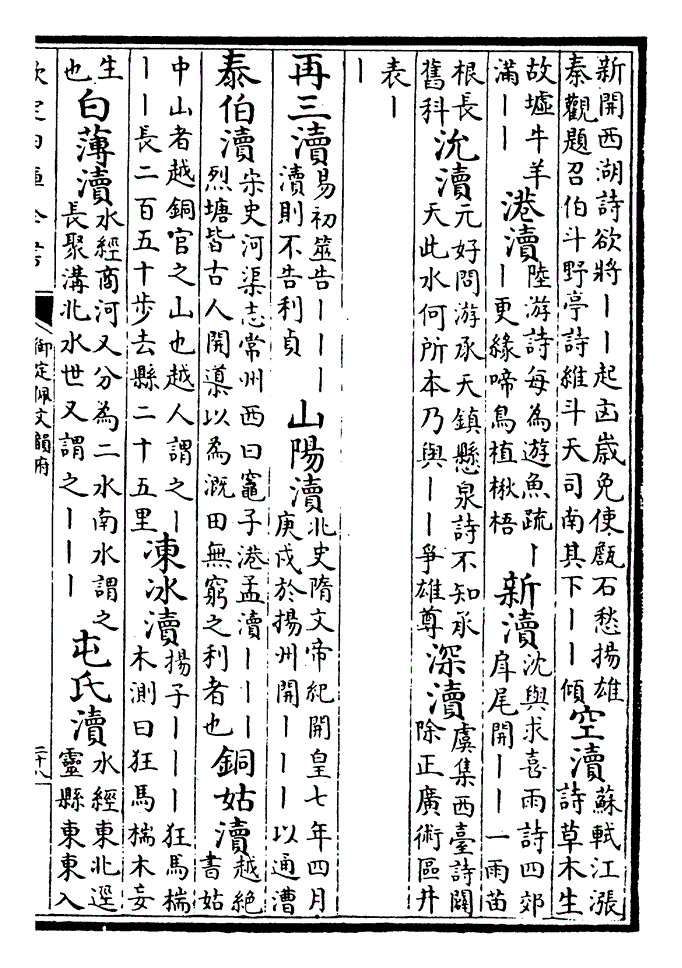 新開西湖詩欲將丨丨起㐫歲免使甔石愁揚雄
秦觀題召伯斗野亭詩維斗天司南其下丨丨傾
空瀆
蘇軾江漲
詩草木生
故墟牛羊
滿丨丨
港瀆
陸游詩每為遊魚疏丨
丨更緣啼鳥植楸梧
新瀆
沈與求喜雨詩四郊
扉尾開丨丨一雨苗
根長
舊科
沇瀆
元好問游承天鎮懸泉詩不知承
天此水何所本乃與丨丨爭雄尊
深瀆
虞集西臺詩闢
除正廣術區井
表丨
丨
再三瀆
易初筮告丨丨丨
瀆則不告利貞
山陽瀆
北史隋文帝紀開皇七年四月
庚戌於揚州開丨丨丨以通漕
泰伯瀆
宋史河渠志常州西曰竈子港孟瀆丨丨丨
烈塘皆古人開導以為溉田無窮之利者也
銅姑瀆
越絕
書姑
中山者越銅官之山也越人謂之丨
丨丨長二百五十步去縣二十五里
凍冰瀆
揚子丨丨丨狂馬椯
木測曰狂馬椯木妄
生
也
白薄瀆
水經商河又分為二水南水謂之
長聚溝北水世又謂之丨丨丨
屯氏瀆
水經東北逕
靈縣東東入
欽定四庫全書
御定佩文韻府
二十八